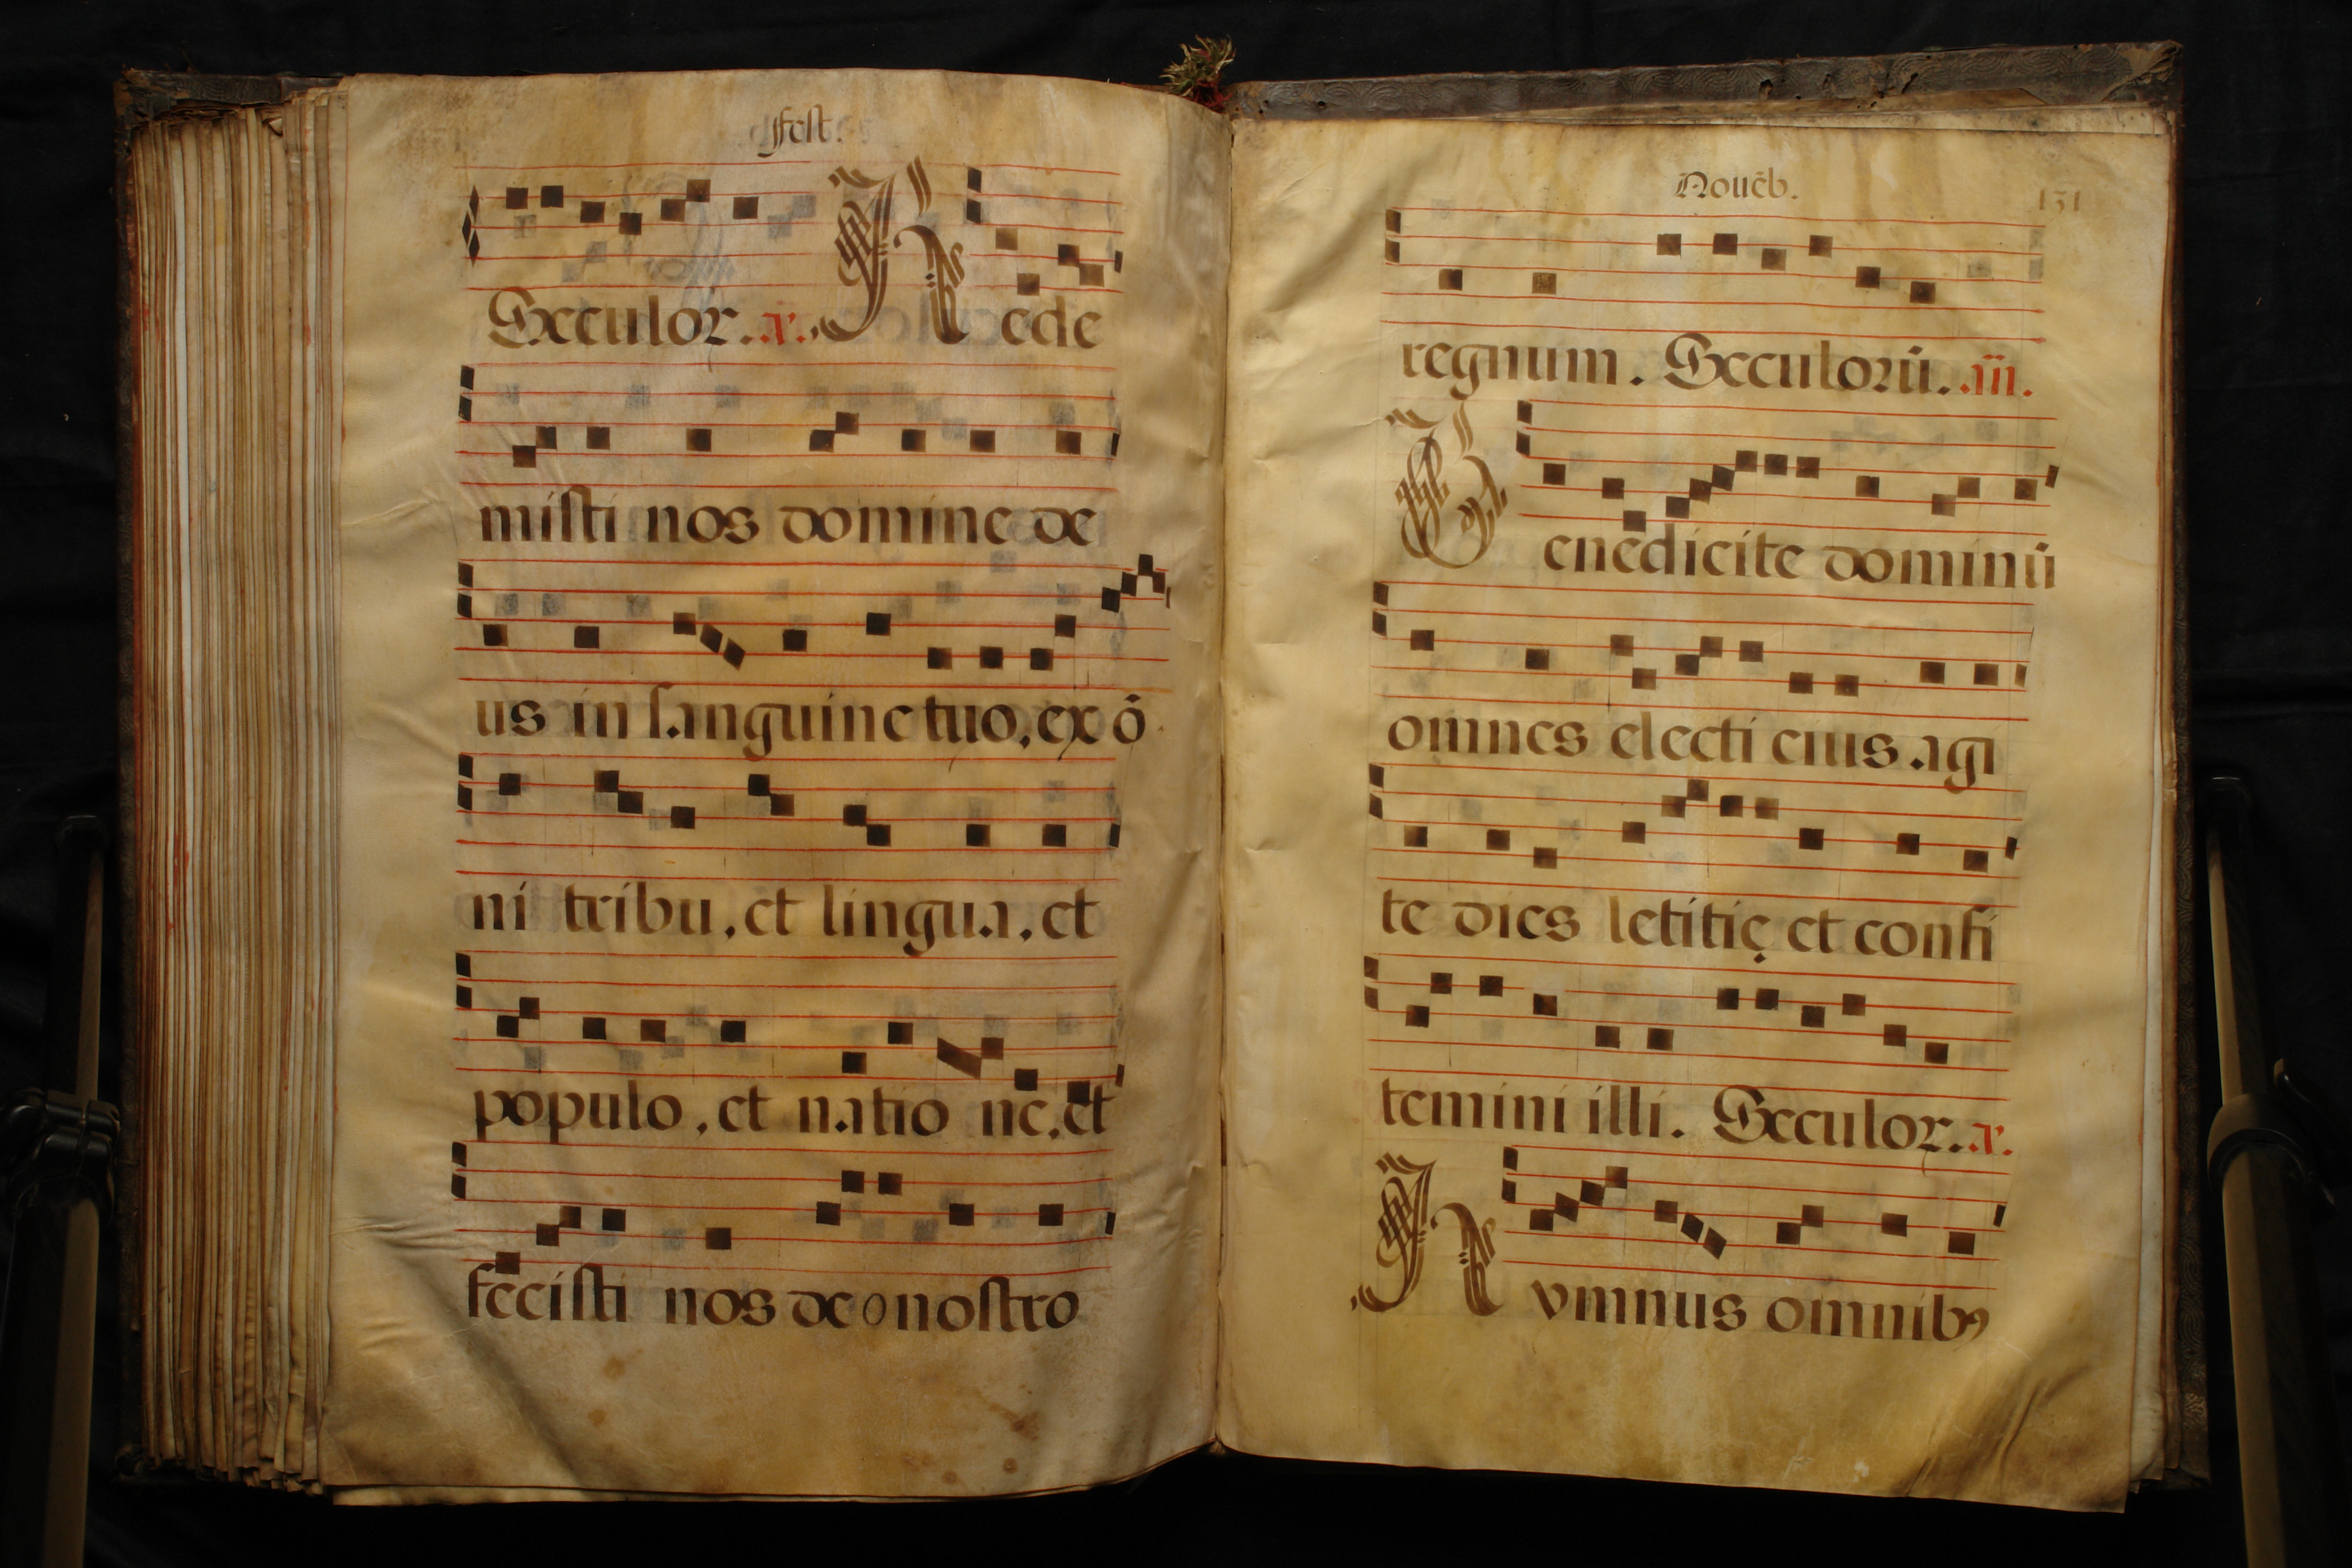 fest.
Seculor. a. Rede
misti nos domine de
us in sanguine tuo, ex ō
ni tribu, et lingua, et
populo, et natio ne, et
fecisti nos deo nostro
Nouēb. 131
regnum. Seculorū. añ.
Benedicite dominū
omnes electi eius agi
te dies letitię et confi
temini illi. Seculor. a.
Hymnus omnibꝰ